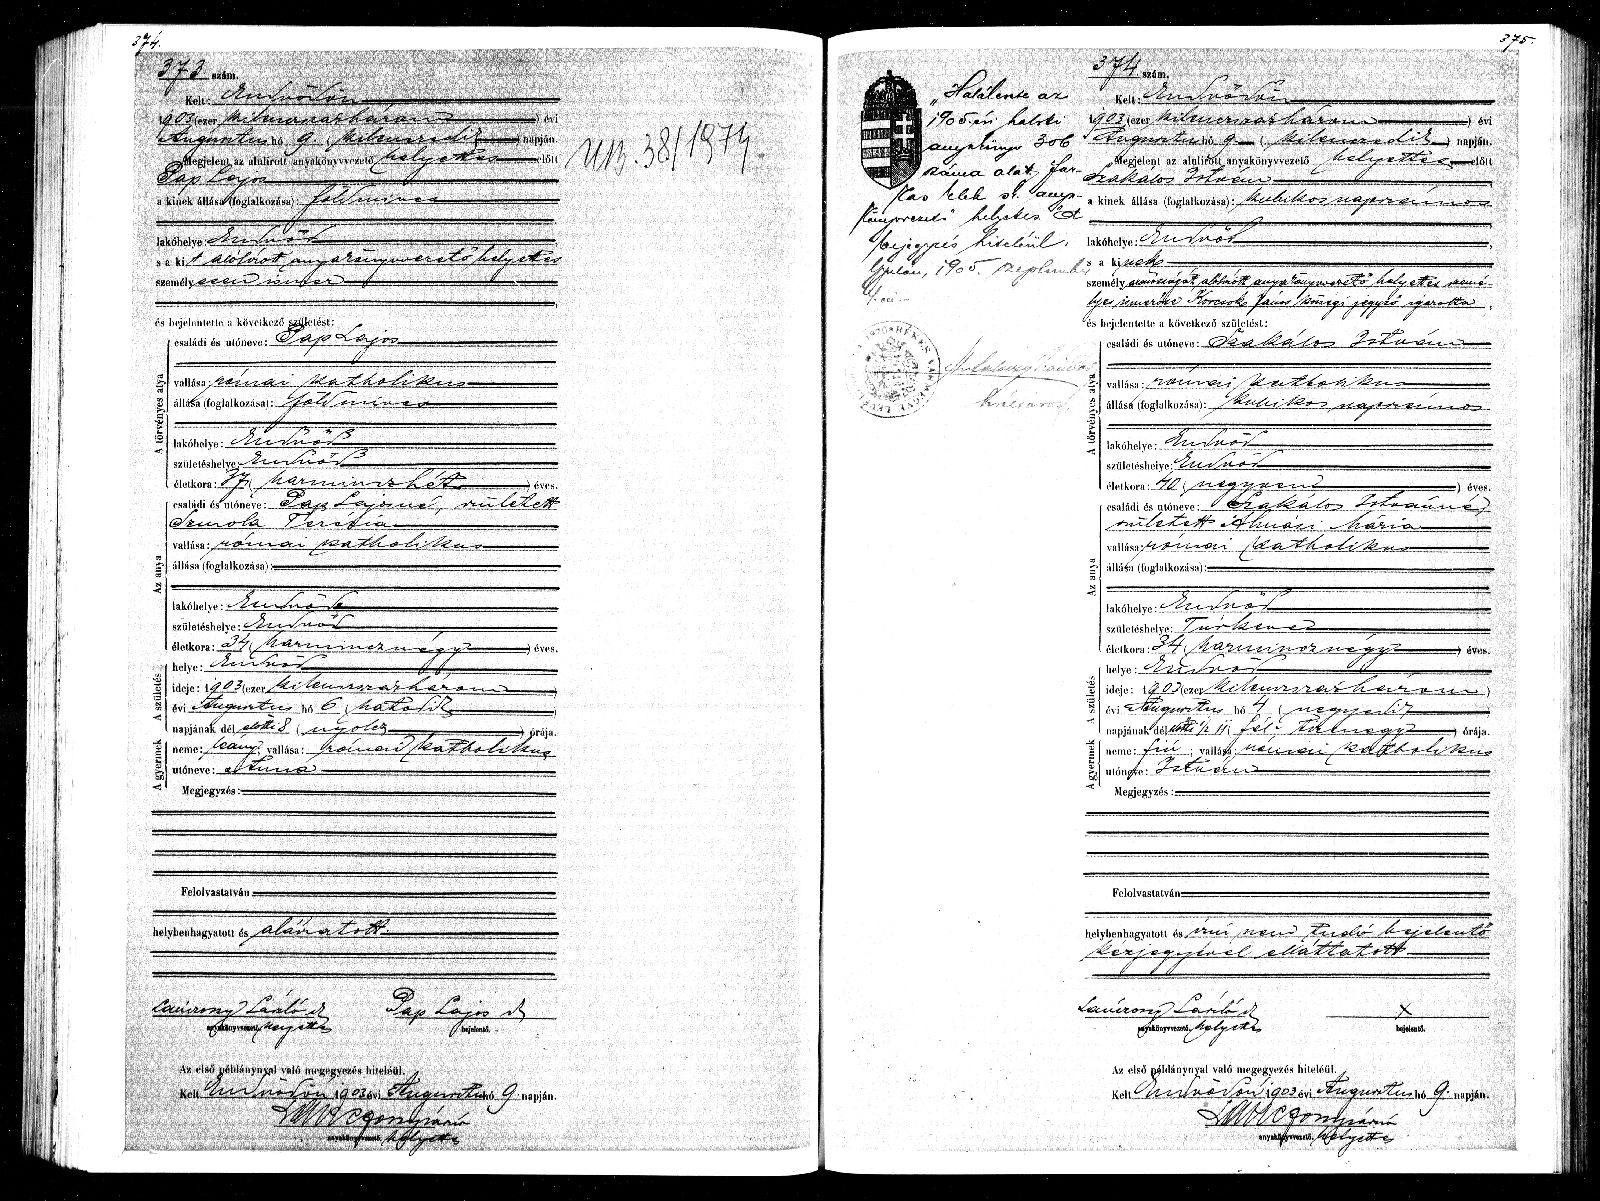 374.
373 szám.
Kelt: Endrődön
1903 (ezer kilenczszázhárom) évi
Augusztus hó 9. (kilenczedik) napján.
Megjelent az alulirott anyakönyvvezető helyettes előtt
Pap Lajos
a kinek állása (foglalkozása): földmíves
lakóhelye: Endrőd
s a kit alólirott anyakönyvvezető helyettes
személyesen ismer
és bejelentette a következő születést:
A törvényes atya
családi és utóneve: Pap Lajos
vallása: római katholikus
állása (foglalkozása): földmíves
lakóhelye: Endrőd
születéshelye: Endrőd
életkora: 37 (harminczhét) éves.
Az anya
családi és utóneve: Pap Lajosné, született
Szmola Terézia
vallása: római katholikus
állása (foglalkozása):
lakóhelye: Endrőd
születéshelye: Endrőd
életkora: 34 (harmincznégy) éves.
A születés
helye: Endrőd
ideje: 1903 (ezer kilenczszázhárom)
évi Augusztus hó 6 (hatodik)
napjának dél előtti 8 (nyolcz) órája.
A gyermek
neme: leány; vallása: római katholikus
utóneve: Anna
Megjegyzés:
Felolvastatván
helybenhagyatott és aláiratott
Pap Lajos
anyakönyvvezető helyettes
bejelentő.
Az első példánynyal való megegyezés hiteléül.
Kelt Endrődön 1903 évi Augusztus hó 9. napján.
anyakönyvvezető. helyettes
38/1974
375.
„Halálesete az
1905. évi halotti
anyakönyv 306
száma alatt, Far-
kas Elek s. anya-
könyvvezető helyettes
bejegyzés hiteléül.
Gyulán, 1905. szeptember
374 szám.
Kelt: Endrődön
1903 (ezer kilenczszázhárom) évi
Augusztus hó 9 (kilenczedik) napján.
Megjelent az alulirott anyakönyvvezető helyettes előtt
Szakálos István
a kinek állása (foglalkozása): kubikos napszámos
lakóhelye: Endrőd
s a kinek
személyazonosságát alólirott anyakönyvvezető helyettes szemé-
lyes ismerőse János községi jegyző igazolta
és bejelentette a következő születést:
A törvényes atya
családi és utóneve: Szakálos István
vallása: római katholikus
állása (foglalkozása): kubikos napszámos
lakóhelye: Endrőd
születéshelye: Endrőd
életkora: 40 (negyven) éves.
Az anya
családi és utóneve: Szakálos Istvánné,
született Almási Mária
vallása: római katholikus
állása (foglalkozása):
lakóhelye: Endrőd
születéshelye: Túrkeve
életkora: 34 (harmincznégy) éves.
A születés
helye: Endrőd
ideje: 1903 (ezer kilenczszázhárom)
évi Augusztus hó 4 (negyedik)
napjának dél előtti 1/2 11 órája.
A gyermek
neme: fiú; vallása: római katholikus
utóneve: István
Megjegyzés:
Felolvastatván
helybenhagyatott és írni nem tudó bejelentő
kézjegyével elláttatott
x
anyakönyvvezető, helyettes
bejelentő.
Az első példánynyal való megegyezés hiteléül.
Kelt Endrődön 1903 évi Augusztus hó 9. napján.
anyakönyvvezető. helyettes